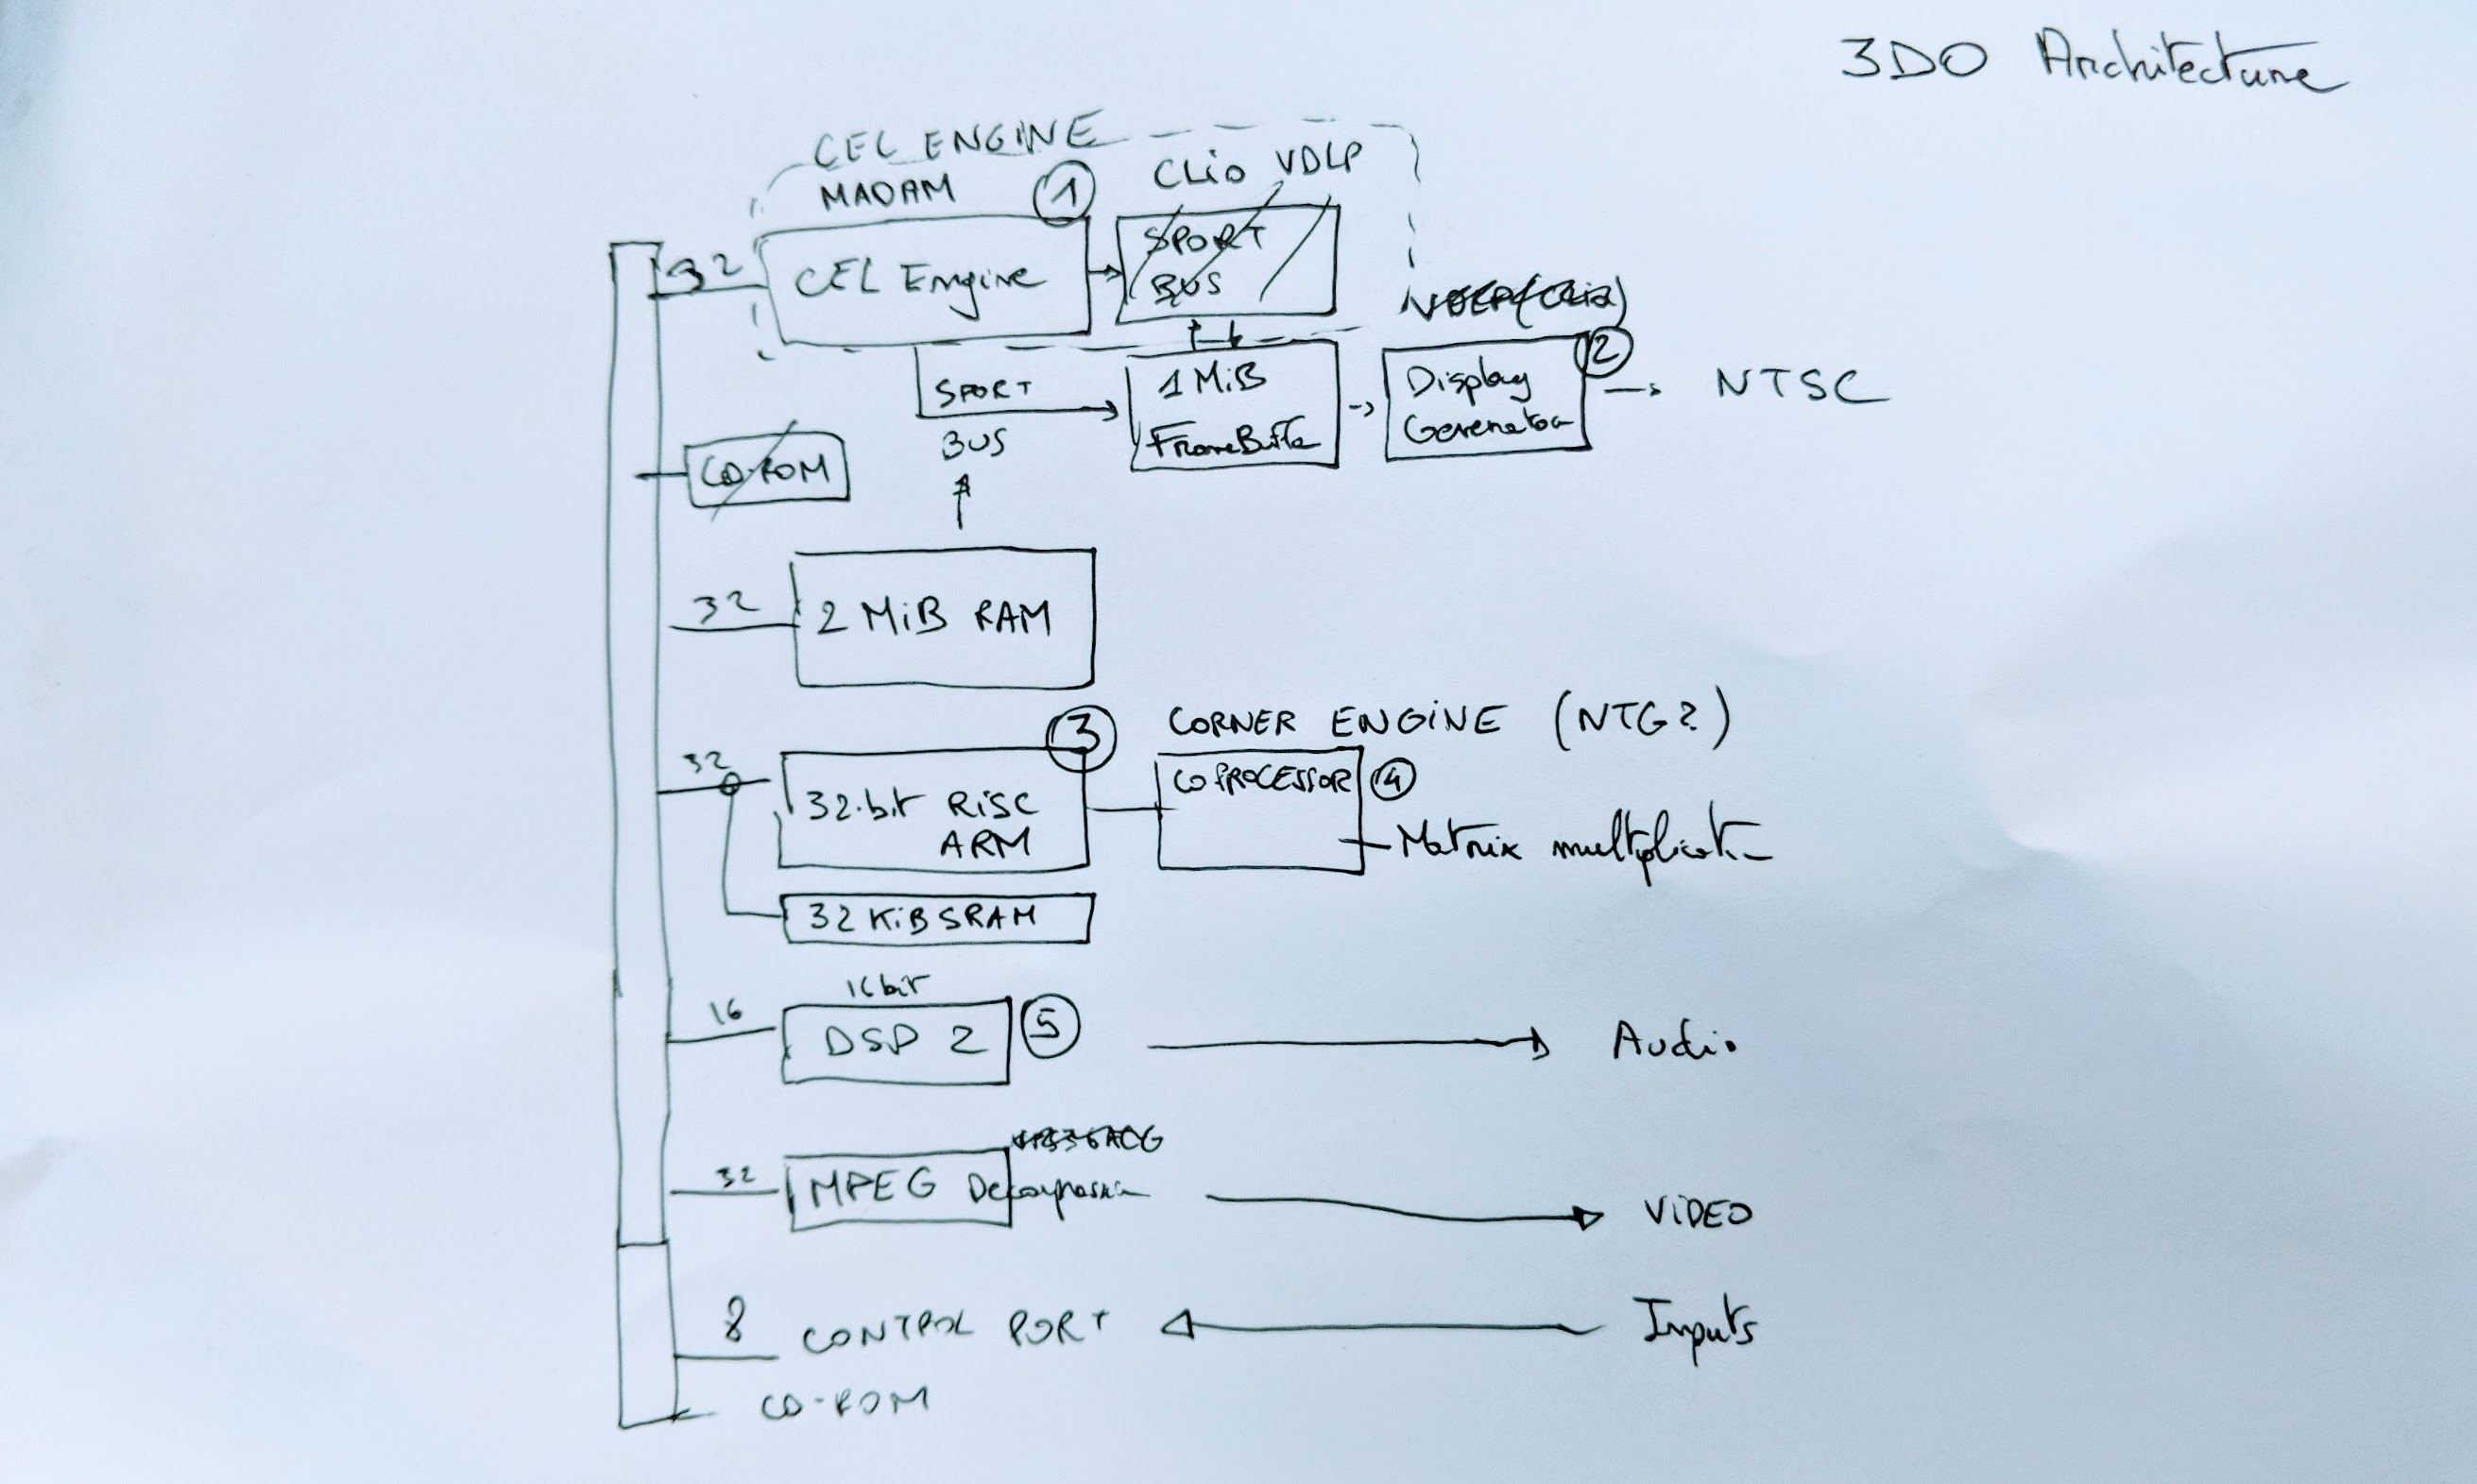 3DO Architecture
CEL ENGINE
MADAM
1
CLiO VDLP
32
CEL Engine
SPORT
BUS
SPORT
BUS
1 MiB
FrameBuffer
2
Display
Generator
NTSC
CD-ROM
32
2 MiB RAM
3
CORNER ENGINE (NTG?)
32
32-bit RiSC
ARM
COPROCESSOR
4
Matrix
32 KiB SRAM
16 bit
16
DSP 2
5
Audio
32
MPEG
ViDEO
8
CONTROL PORT
Inputs
CD-ROM